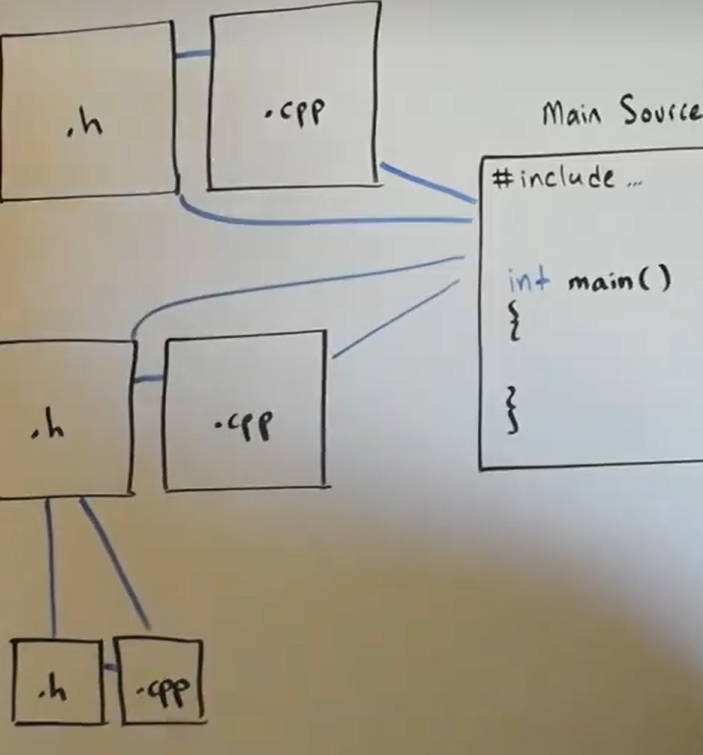 .h
.cpp
Main Source
#include ...
int main()
{
}
.h
.cpp
.h
.cpp